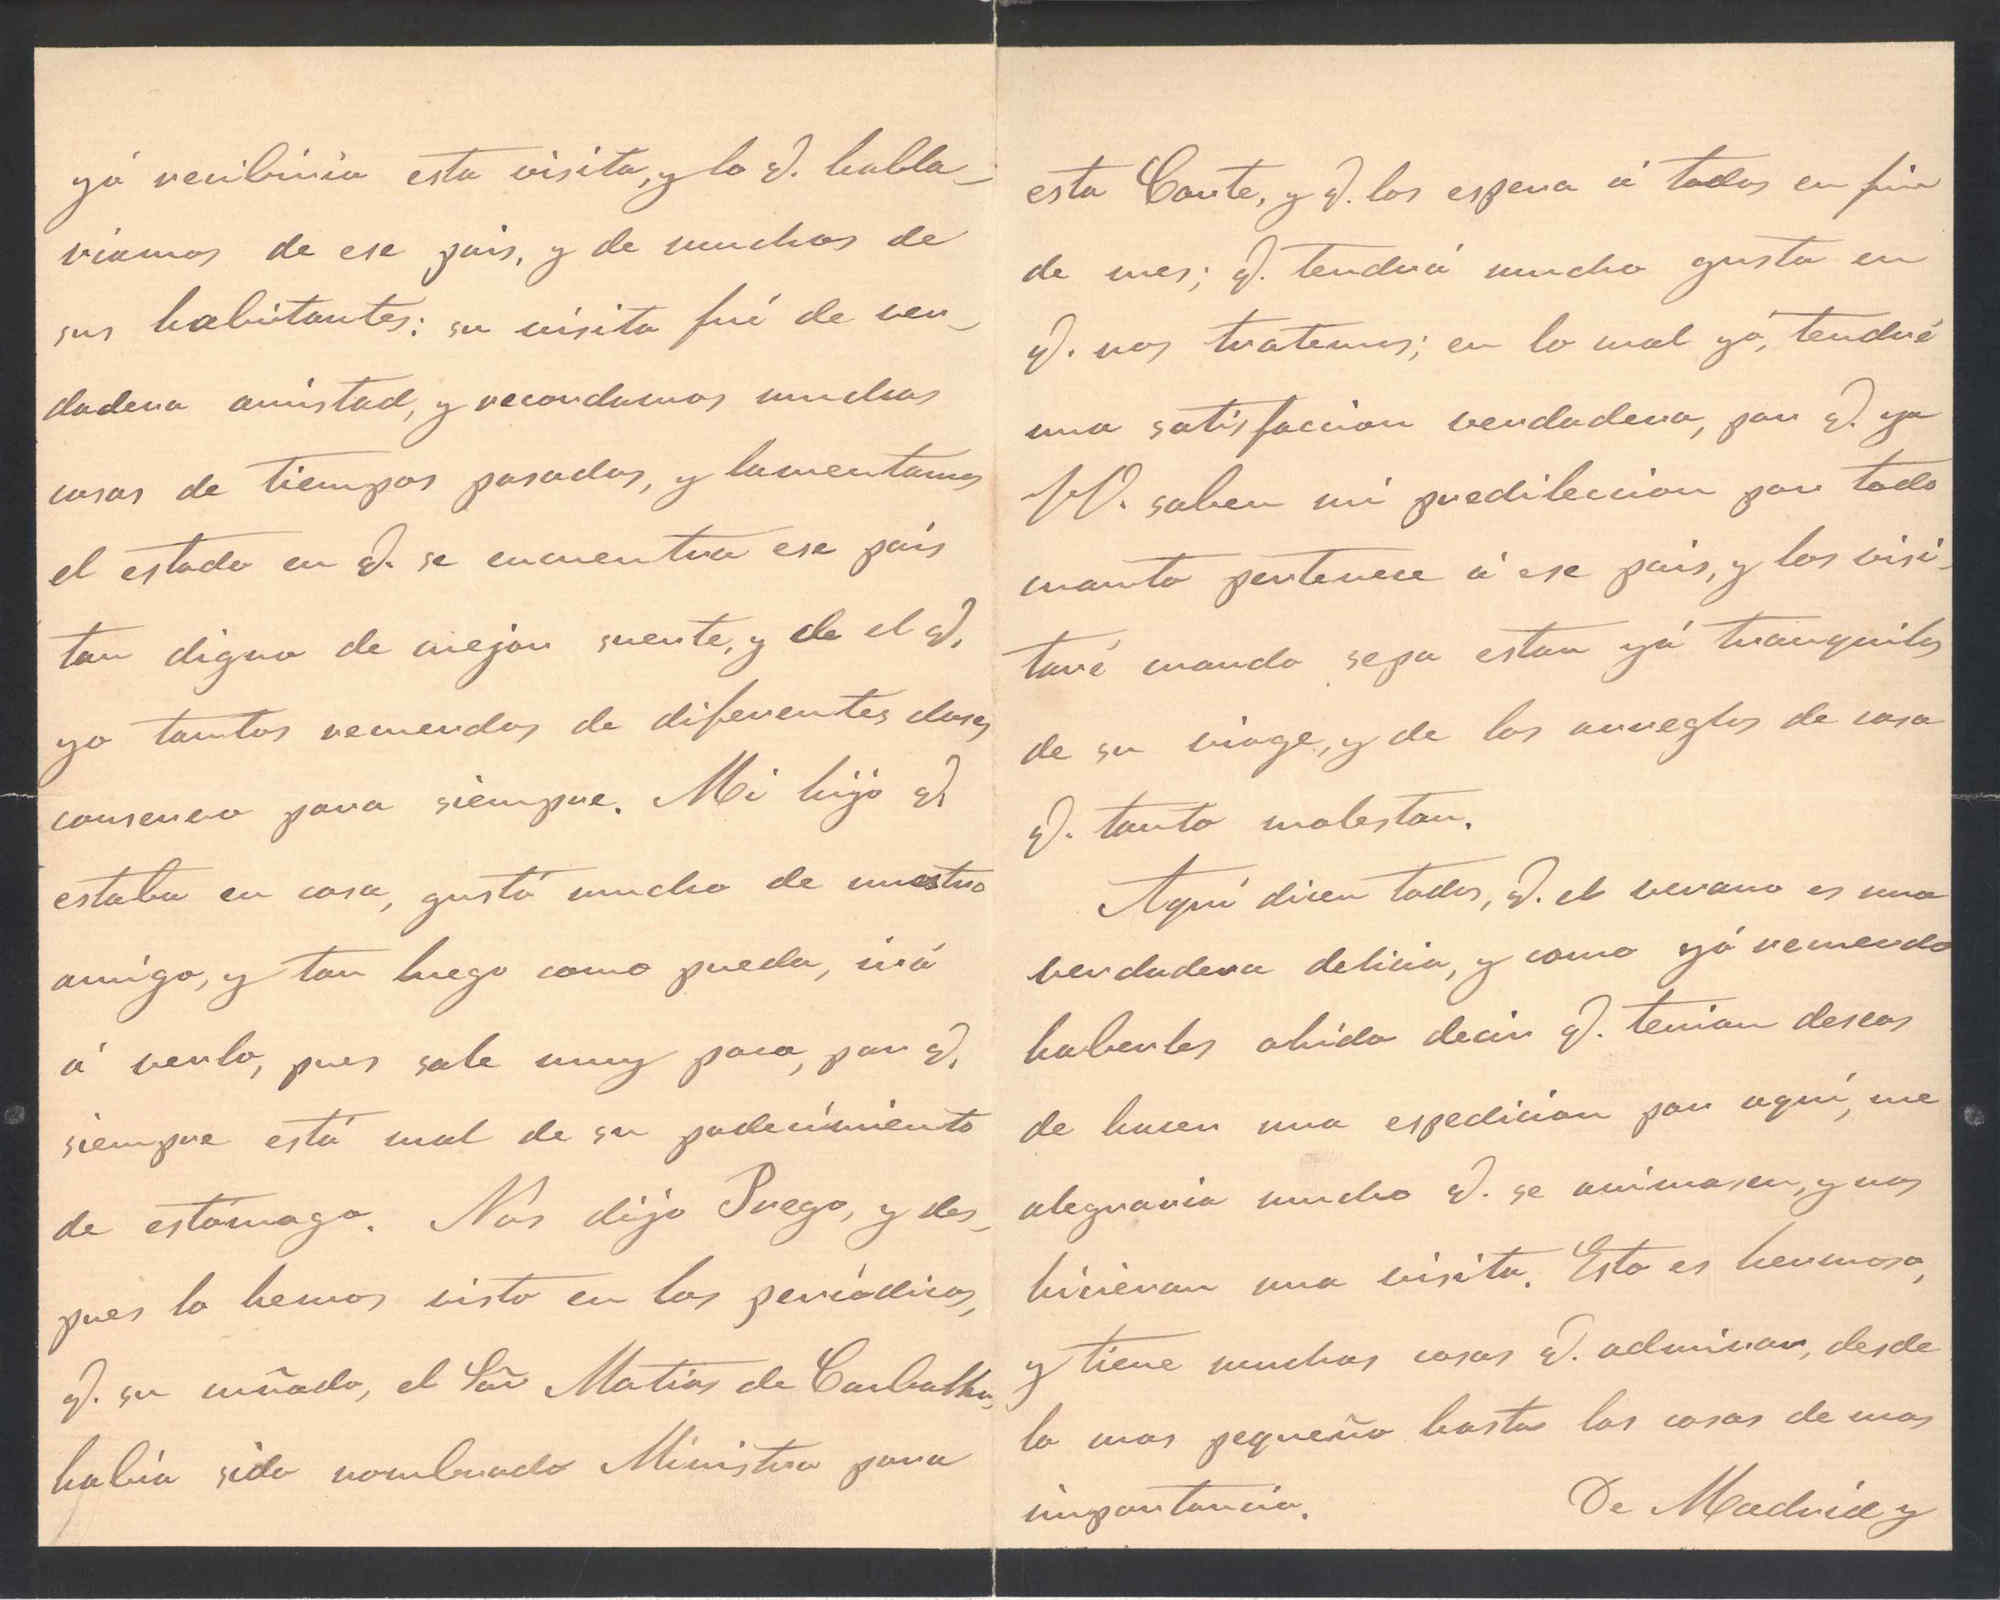 yó recibiria esta visita, y lo q. habla-
riamos de ese pais, y de muchos de
sus habitantes: su visita fué de ver-
dadera amistad, y recordamos muchas
cosas de tiempos pasados, y lamentamos
el estado en q. se encuentra ese país
tan digno de mejor suerte, y de el q.
yo tantos recuerdos de diferentes clases
conservo para siempre. Mi hijo q.
estaba en casa, gustó mucho de nuestro
amigo, y tan luego como pueda, irá
á verlo, pues sale muy poco, por q.
siempre está mal de su padecimiento
de estómago. Nos dijo Prego, y des-
pues lo hemos visto en los periódicos,
q. su cuñado, el Sōr Matías de Carballo,
habia sido nombrado Ministro para
esta Corte, y q. los espera á todos en fin
de mes; q. tendrá mucho gusto en
q. nos tratemos; en lo cual yó, tendré
una satisfaccion verdadera, por q. ya
VV. saben mi predileccion por todo
cuanto pertenece á ese pais, y los visi-
taré cuando sepa estan yá tranquilos
de su viage, y de los arreglos de casa
q. tanto molestan.
Aquí dicen todos, q. el verano es una
verdadera delicia, y como yó recuerdo
haberles ohido decir q. tenian deseos
de hacer una espedicion por aquí, me
alegraria mucho q. se animasen, y nos
hicieran una visita. Esto es hermoso,
y tiene muchas cosas q. admirar, desde
lo mas pequeño hasta las cosas de mas
importancia. De Madrid y